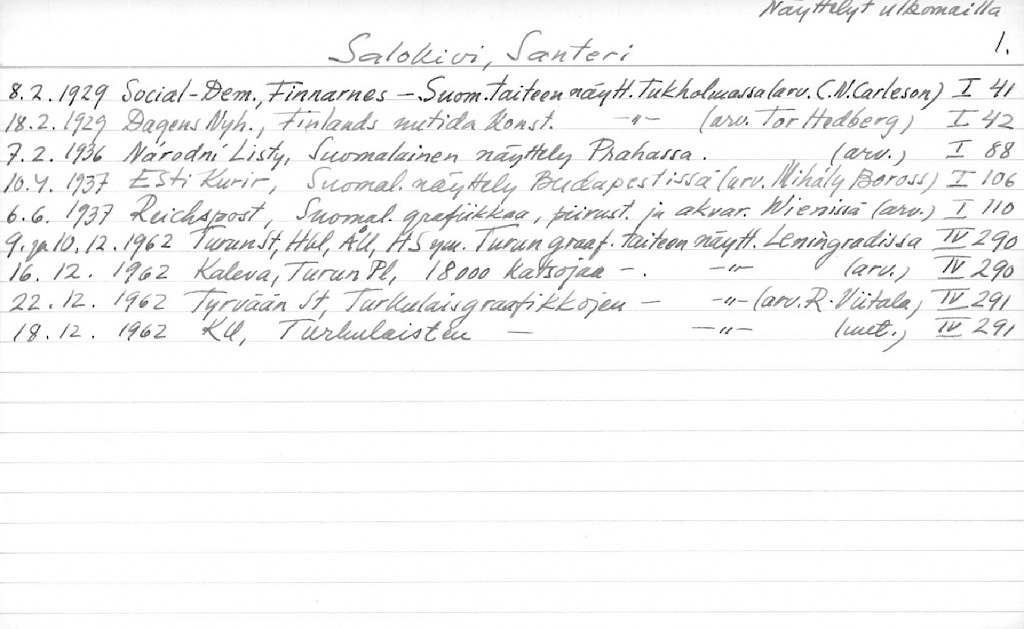 Näyttelyt ulkomailla
1.
Salokivi, Santeri
8.2.1929 Social-Dem., Finnarnes - Suom. taiteen näytt. Tukholmassa (arv. C.N. Carleson) I 41
18.2.1929 Dagens Nyh., Finlands nutida konst. -"- (arv. Tor Hedberg) I 42
7.2.1936 Národní Listy, Suomalainen näyttely Prahassa. (arv.) I 88
10.4.1937 Esti Kurir, Suomal. näyttely Budapestissä (arv. Mihály Boross) I 106
6.6.1937 Reichspost, Suomal. grafiikkaa, piirust. ja akvar. Wienissä (arv.) I 110
9. ja 10.12.1962 TurunSt, Hbl, ÅU, HS ym. Turun graaf. taiteen näytt. Leningradissa IV 290
16.12.1962 Kaleva, Turun Pl, 18000 katsojaa -. -"- (arv.) IV 290
22.12.1962 Tyrvään St, Turkulaisgraafikkojen - -"- (arv. R. Viitala) IV 291
18.12.1962 KU, Turkulaisten - -"- (uut.) IV 291